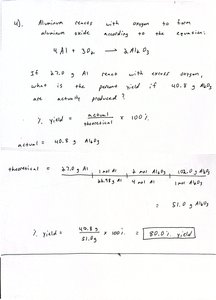 4). Aluminum reacts with oxygen to form
aluminum oxide according to the equation:
4 Al + 3O₂ → 2 Al₂O₃
If 27.0 g Al react with excess oxygen,
what is the percent yield if 40.8 g Al₂O₃
are actually produced?
% yield = actual / theoretical x 100%
actual = 40.8 g Al₂O₃
theoretical = 27.0 g Al | 1 mol Al | 2 mol Al₂O₃ | 102.0 g Al₂O₃
26.98 g Al | 4 mol Al | 1 mol Al₂O₃
= 51.0 g Al₂O₃
% yield = 40.8 g / 51.0 g x 100% = 80.0% yield